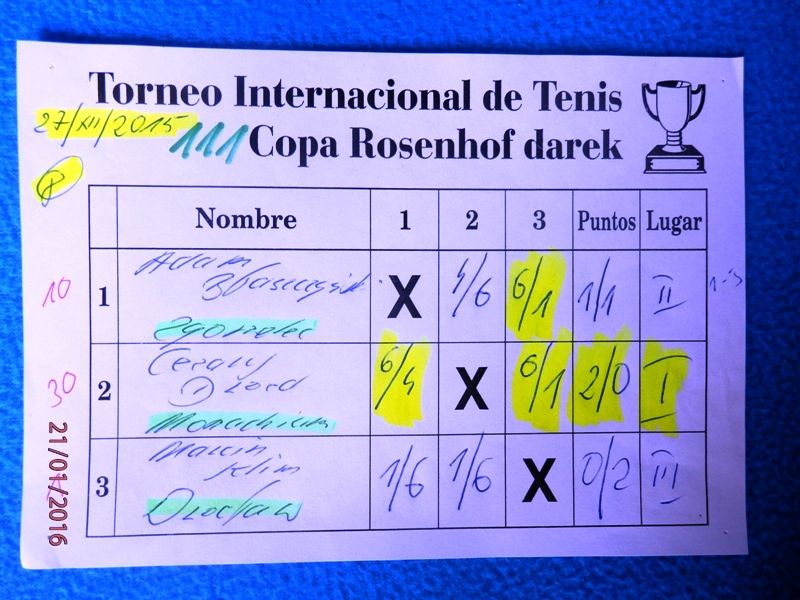 Torneo Internacional de Tenis
27/XII/2015 111 Copa Rosenhof darek
Nombre 1 2 3 Puntos Lugar
10 1 Adam X 4/6 6/1 1/1 II 1-3
Zgorzelec
30 2 Cezary 6/4 X 6/1 2/0 I
Monachium
3 Marcin Klim 1/6 1/6 X 0/2 III
Wrocław
21/01/2016